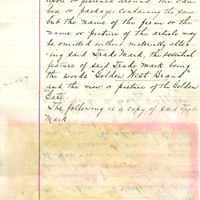 upon or pasted around the can
box or package containing the same
but the name of the firm or the
name or picture of the article may
be omitted without materially alter-
ing said Trade Mark, the essential
feature of said Trade Mark being
the words "Golden West Brand"
and the view or picture of the Golden
Gate.
The following is a copy of said Trade
Mark